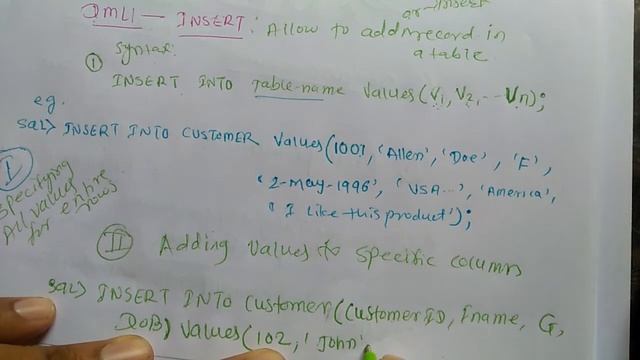 DML1 — INSERT: Allow to add record in
or insert
a table
Syntax:
① INSERT INTO Table-name values(V1, V2, -- Vn);
eg.
SQL> INSERT INTO CUSTOMER Values(1001, 'Allen', 'Doe', 'F',
'2-May-1996', 'USA...', 'America',
'I like this product');
I
Specifying
All values
for entire
rows
II Adding values to specific columns
SQL> INSERT INTO Customer(CustomerID, Fname, G,
DOB) values(102, 'John'